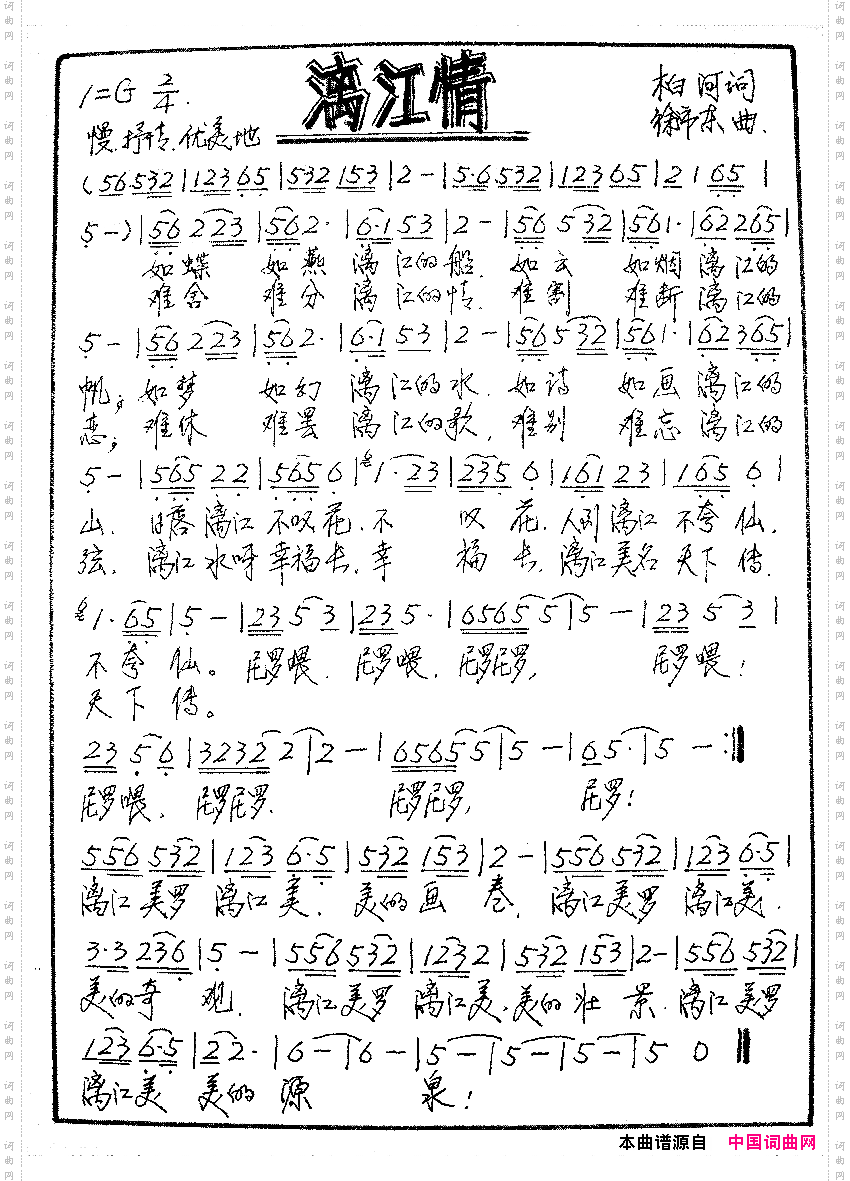 漓江情
1=G 2/4.
柏河词
慢.抒情.优美地
徐沛东曲.
(56532|12365|532 153|2-|5·6532|12365|21 65|
5-)|56 223|562·|6·1 53|2-|56 532|561·|62265|
如蝶 如燕 漓江的船. 如云 如烟 漓江的
难舍 难分 漓江的情. 难割 难断 漓江的
5-|56 223|562·|6·1 53|2-|56 532|561·|62365|
帆; 如梦 如幻 漓江的水. 如诗 如画 漓江的
恋; 难休 难罢 漓江的歌, 难别 难忘 漓江的
5-|565 22|565 0|1· 23|235 0|161 23|165 0|
山. 漓江 不叹花. 不 叹 花. 人到漓江 不夸仙.
弦. 漓江水呀幸福长. 幸 福 长. 漓江美名 天下传.
1· 65|5-|23 53|23 5·|6565 5|5-|23 53|
不夸 仙。 尼罗喂. 尼罗喂. 尼罗尼罗, 尼罗喂!
天下 传。
23 56|3232 2|2-|6565 5|5-|65·|5-:‖
尼罗喂. 尼罗尼罗. 尼罗尼罗, 尼罗!
556 532|123 6·5|532 153|2-|556 532|123 6·5|
漓江美罗 漓江美. 美的画 卷. 漓江美罗 漓江美.
3·3 236|5-|556 532|1232|532 153|2-|556 532|
美的奇 观. 漓江美罗 漓江美. 美的壮 景. 漓江美罗
123 6·5|22·|6-|6-|5-|5-|5-|5 0‖
漓江美 美的 源 泉!
本曲谱源自 中国词曲网
词曲网